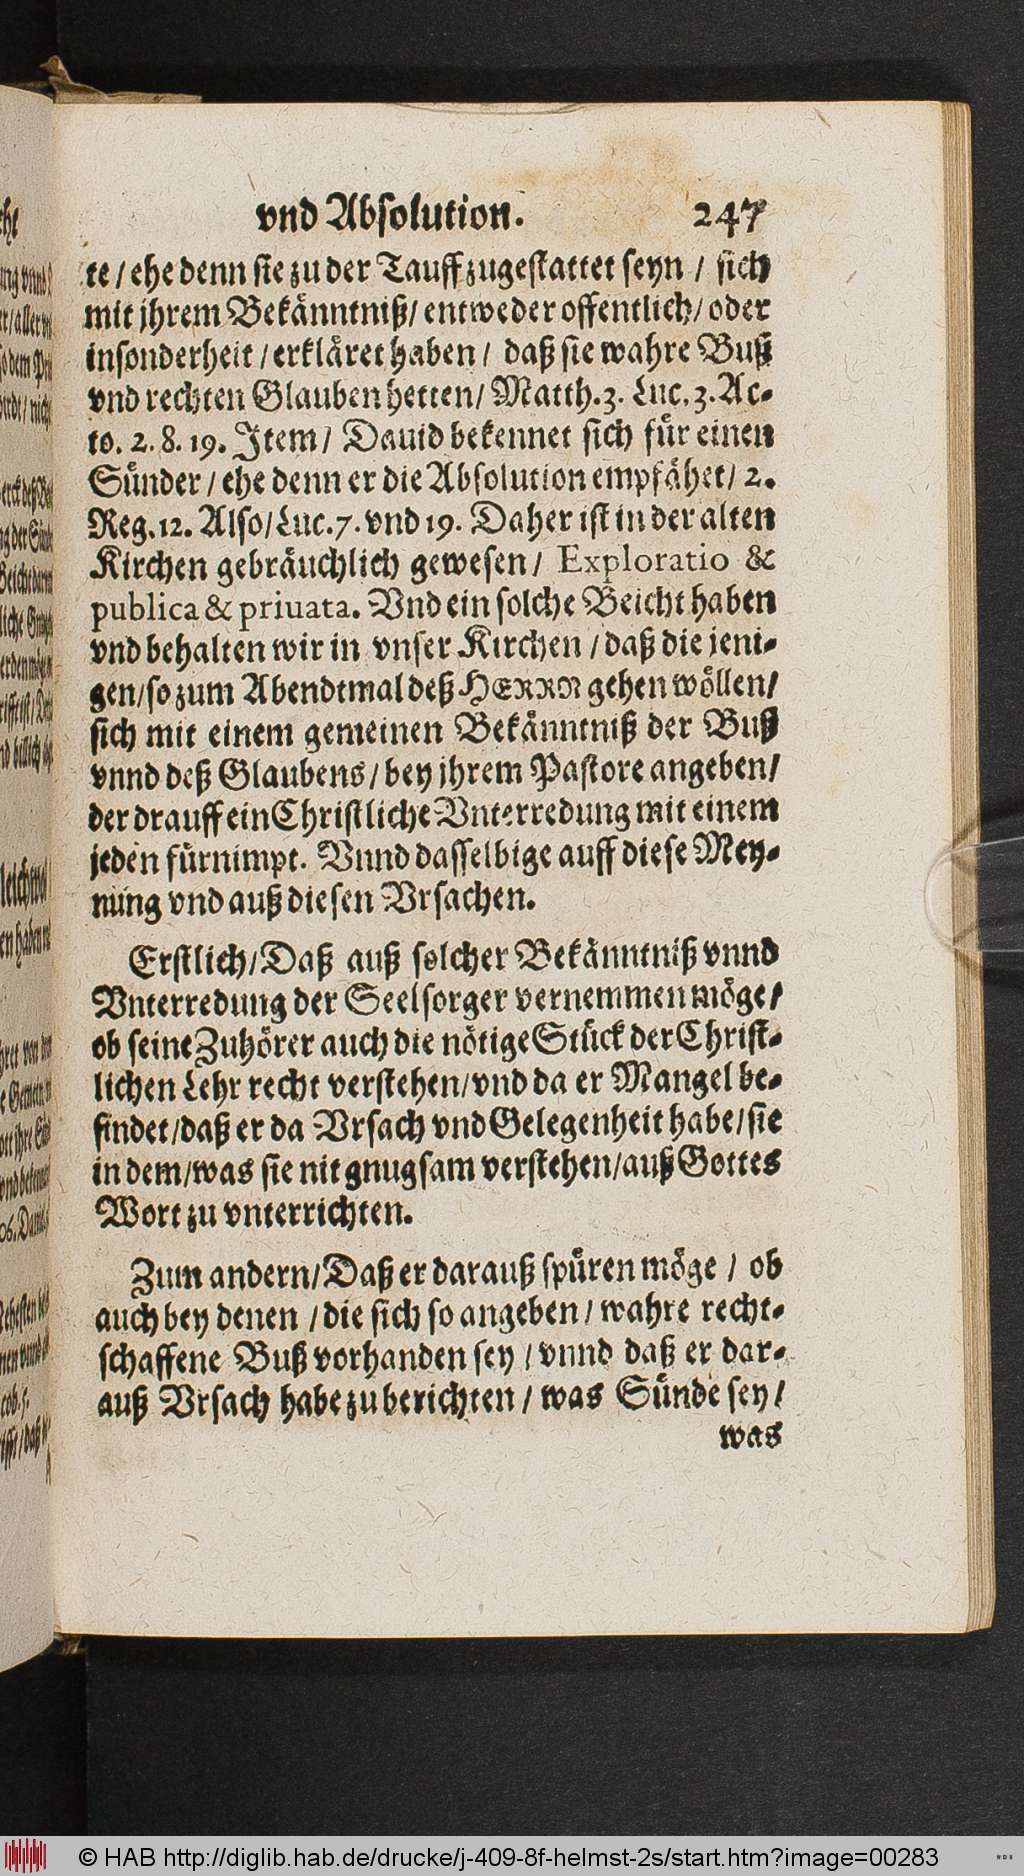 vnd Absolution. 247
te / ehe denn sie zu der Tauff zugestattet seyn / sich
mit jhrem Bekänntniß / entweder offentlich / oder
insonderheit / erkläret haben / daß sie wahre Buß
vnd rechten Glauben hetten / Matth. 3. Luc. 3. Ac-
to. 2. 8. 19. Item / Dauid bekennet sich für einen
Sünder / ehe denn er die Absolution empfähet / 2.
Reg. 12. Also / Luc. 7. vnd 19. Daher ist in der alten
Kirchen gebräuchlich gewesen / Exploratio &
publica & priuata. Vnd ein solche Beicht haben
vnd behalten wir in vnser Kirchen / daß die jeni-
gen / so zum Abendtmal deß HERRN gehen wöllen /
sich mit einem gemeinen Bekänntniß der Buß
vnnd deß Glaubens / bey jhrem Pastore angeben /
der drauff ein Christliche Vnterredung mit einem
jeden fürnimpt. Vnnd dasselbige auff diese Mey-
nung vnd auß diesen Vrsachen.
Erstlich / Daß auß solcher Bekänntniß vnnd
Vnterredung der Seelsorger vernemmen möge /
ob seine Zuhörer auch die nötige Stück der Christ-
lichen Lehr recht verstehen / vnd da er Mangel be-
findet / daß er da Vrsach vnd Gelegenheit habe / sie
in dem / was sie nit gnugsam verstehen / auß Gottes
Wort zu vnterrichten.
Zum andern / Daß er darauß spüren möge / ob
auch bey denen / die sich so angeben / wahre recht-
schaffene Buß vorhanden sey / vnnd daß er dar-
auß Vrsach habe zu berichten / was Sünde sey /
was
© HAB http://diglib.hab.de/drucke/j-409-8f-helmst-2s/start.htm?image=00283